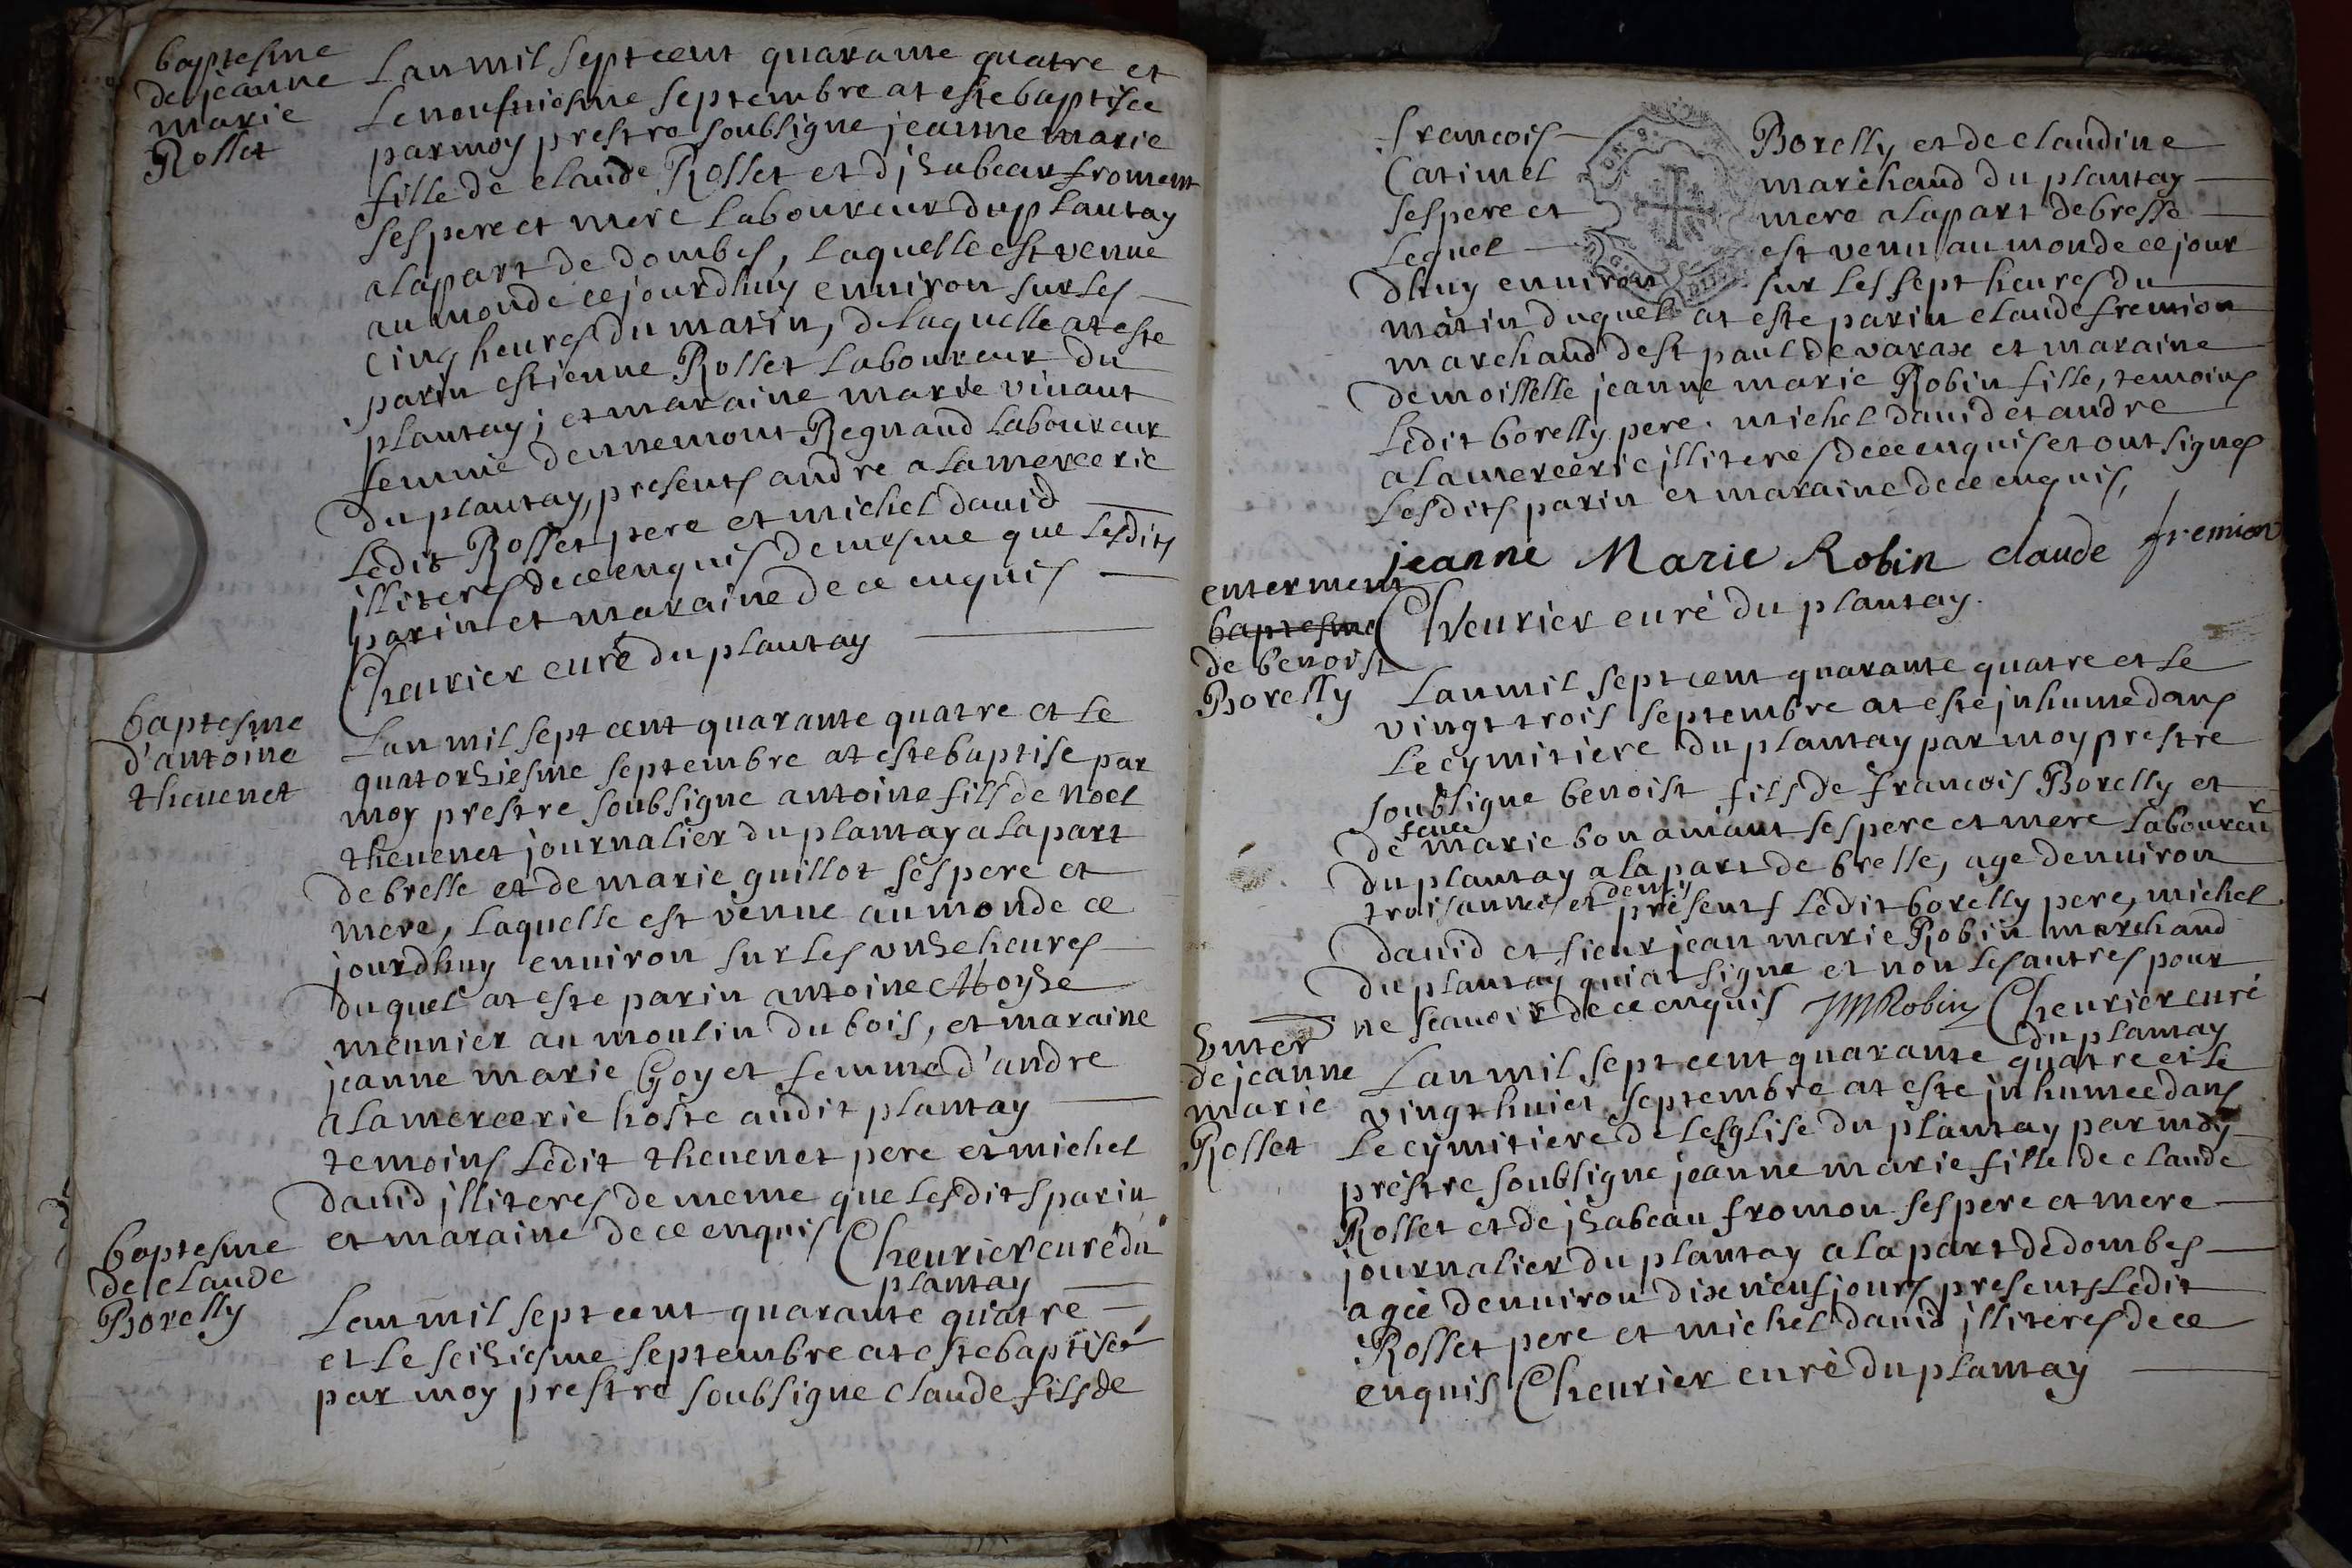 baptesme
de jeanne
marie
Rollet
Lan mil sept cent quarante quatre et
le neufuiesme septembre at este baptisée
par moy prestre soubsigne jeanne marie
fille de claude Rollet et djzabeau froment
ses pere et mere laboureur du plantay
a la part de dombes, laquelle est venue
au monde ce jourdhuy enuiron sur les
cinq heures du matin, de laquelle at este
parin estienne Rollet laboureur du
plantay; et maraine marie vinant
femme dennemont Regnaud laboureur
du plantay, presents andre alamercerie
ledit Rollet pere et michel dauid
jlliteres de ce enquis de mesme que lesdits
parin et maraine de ce enquis
Cheurier curé du plantay
baptesme
d'antoine
theuenet
Lan mil sept cent quarante quatre et le
quatorziesme septembre at este baptise par
moy prestre soubsigne antoine fils de noel
theuenet journalier du plantay a la part
de bresse et de marie guillot ses pere et
mere, laquelle est venue au monde ce
jourdhuy enuiron sur les vnze heures
duquel at este parin antoine Moyze
meunier au moulin du bois, et maraine
jeanne marie Goyet femme d'andre
alamercerie hoste audit plantay
temoins ledit theuenet pere et michel
dauid jlliteres de meme que lesdits parin
et maraine de ce enquis Cheurier curé du
plantay
baptesme
de claude
Borelly
Lan mil sept cent quarante quatre
et le seiziesme septembre at este baptisé
par moy prestre soubsigne claude fils de
francois Borelly et de claudine
Catimel marchand du plantay
ses pere et mere a la part de bresse
lequel est venu au monde ce jour
dhuy enuiron sur les sept heures du
matin duquel at este parin claude fremion
marchand de st paul de varax et maraine
demoiselle jeanne marie Robin fille, temoins
ledit borelly pere. michel dauid et andre
alamercerie jlliteres de ce enquis et ont signes
lesdits parin et maraine de ce enquis,
jeanne Marie Robin claude fremion
Cheurier curé du plantay.
enterment
baptesme
de benoist
Borelly
Lan mil sept cent quarante quatre et le
vingt trois septembre at este jnhume dans
le cymitiere du plantay par moy prestre
soubsigne benoist fils de francois Borelly et
feue
de marie bonamant ses pere et mere laboureur
du plantay a la part de bresse, age denuiron
demy
trois annes et presents ledit borelly pere, michel
dauid et sieur jean marie Robin marchand
du plantay qui at signe et non les autres pour
ne scauoir de ce enquis JMRobin Cheurier curé
du plantay
Enter
de jeanne
marie
Rollet
Lan mil sept cent quarante quatre et le
vingt huict septembre at este jnhumee dans
le cymitiere de lesglise du plantay par moy
prestre soubsigne jeanne marie fille de claude
Rollet et de jzabeau fromon ses pere et mere
journalier du plantay a la part de dombes
agée denuiron dix neuf jours presents ledit
Rollet pere et michel dauid jlliteres de ce
enquis Cheurier curé du plantay